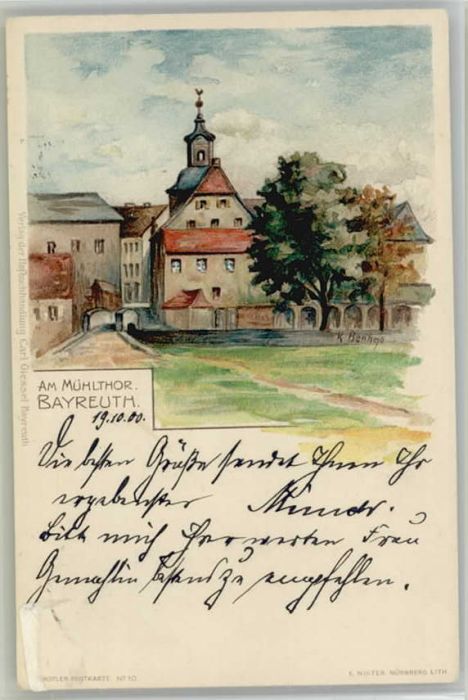 K Benhgo
Verlag der Hofbuchhandlung Carl Giessel Bayreuth
AM MÜHLTHOR.
BAYREUTH.
19.10.00.
Die besten Grüße sendet Ihnen Ihr
ergebenster
Bitte mich Ihrer werten Frau
Gemahlin bestens zu empfehlen.
KÜNSTLER-POSTKARTE. Nº 10.
E. NISTER. NÜRNBERG LITH.